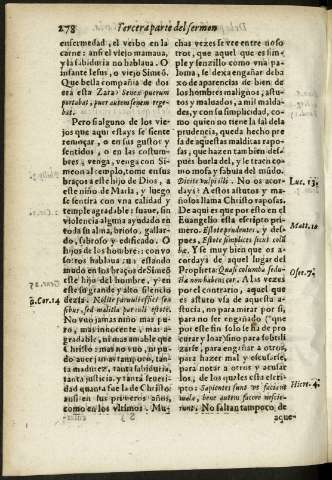 278
Tercera parte del sermon
enfermedad, el verbo en la
carne: ansi el viejo mamaua,
y la sabiduria no hablaua. O
infante Iesus, o viejo Simeõ.
Que bella compañia de dos
era esta Zara: Senex puerum
portabat, puer autem senem rege-
bat.
Pero si alguno de los vie-
jos que aqui estays se siente
remoçar, o en sus gustos y
sentidos, o en las costum-
bres, venga, venga con Si-
meon al templo, tome en sus
braços a este hijo de Dios, a
este niño de Maria, y luego
se sentira con vna calidad y
temple agradable: suaue, sin
violencia alguna ayudado en
toda su alma, brioso, gallar-
do, sibroso y edificado. O
hijos de los hombres: con vo
sotros hablaua: u estando
mudo en los braços de Simeõ
este hijo del hombre, y en
este su grande y alto silencio
dezia. Nolite paruuli effici sen
sibus, sed malitia paruuli estote.
No vuo jamas niño mas pu-
ro, mas innocente, mas a-
gradable, ni mas amable que
Christo: mas no vuo, ni pu-
do auer in un tampoco, tan-
ta madurez, tanta sabiduria,
tanta justicia, y tanta seueri-
dad quanta fue la de Christo
ansi en sus primeros años,
como en los vltimos. Mu-
chas vezes se vee entre noso
tros, que aquel que es sim-
ple y senzillo como vna pa-
loma, se dexa engañar deba
xo de aparencias de bien de
los hombres malignos, astu-
tos y maluados, a mil malda-
des, y con su simplicidad, co-
mo quien no tiene la sal de la
prudencia, queda hecho pre
sa de aquestas malditas rapo-
sas, que hazen tambien des-
pues burla del, y le traen co-
mo mofa y fabula del mũdo.
Dicite vulpi illi. No os aco-
rdays? A estos astutos y ma-
ños os llama Christo raposas.
De aqui es que por esto en el
Euangelio esta escripto pri-
mero, Estote prudentes, y des-
pues, Estote simplices sicut colũ
be. Y se muy bien que os a-
cordays de aquel lugar del
Propheta: Quasi columba sedu-
cta non habens cor. A las vezes
por el contrario, aquel que
es astuto vsa de aquesta a-
stucia, no para mirar por si,
para no ser engañado (que
por este fin solo se ha de pro
curar y loar) sino para sobtili
zarse, para engañar a otros,
para hazer mal y escusarse,
para notar a otros y acusar-
los, de los quales esta escri-
pto: Sapientes sunt vt faciant
mala, bene autem facere nescie-
runt. No faltan tampoco de
aque-
S 3
1. Cor. 14
Luc. 13.
Matt. 10
Ose. 7.
Hiere. 4.